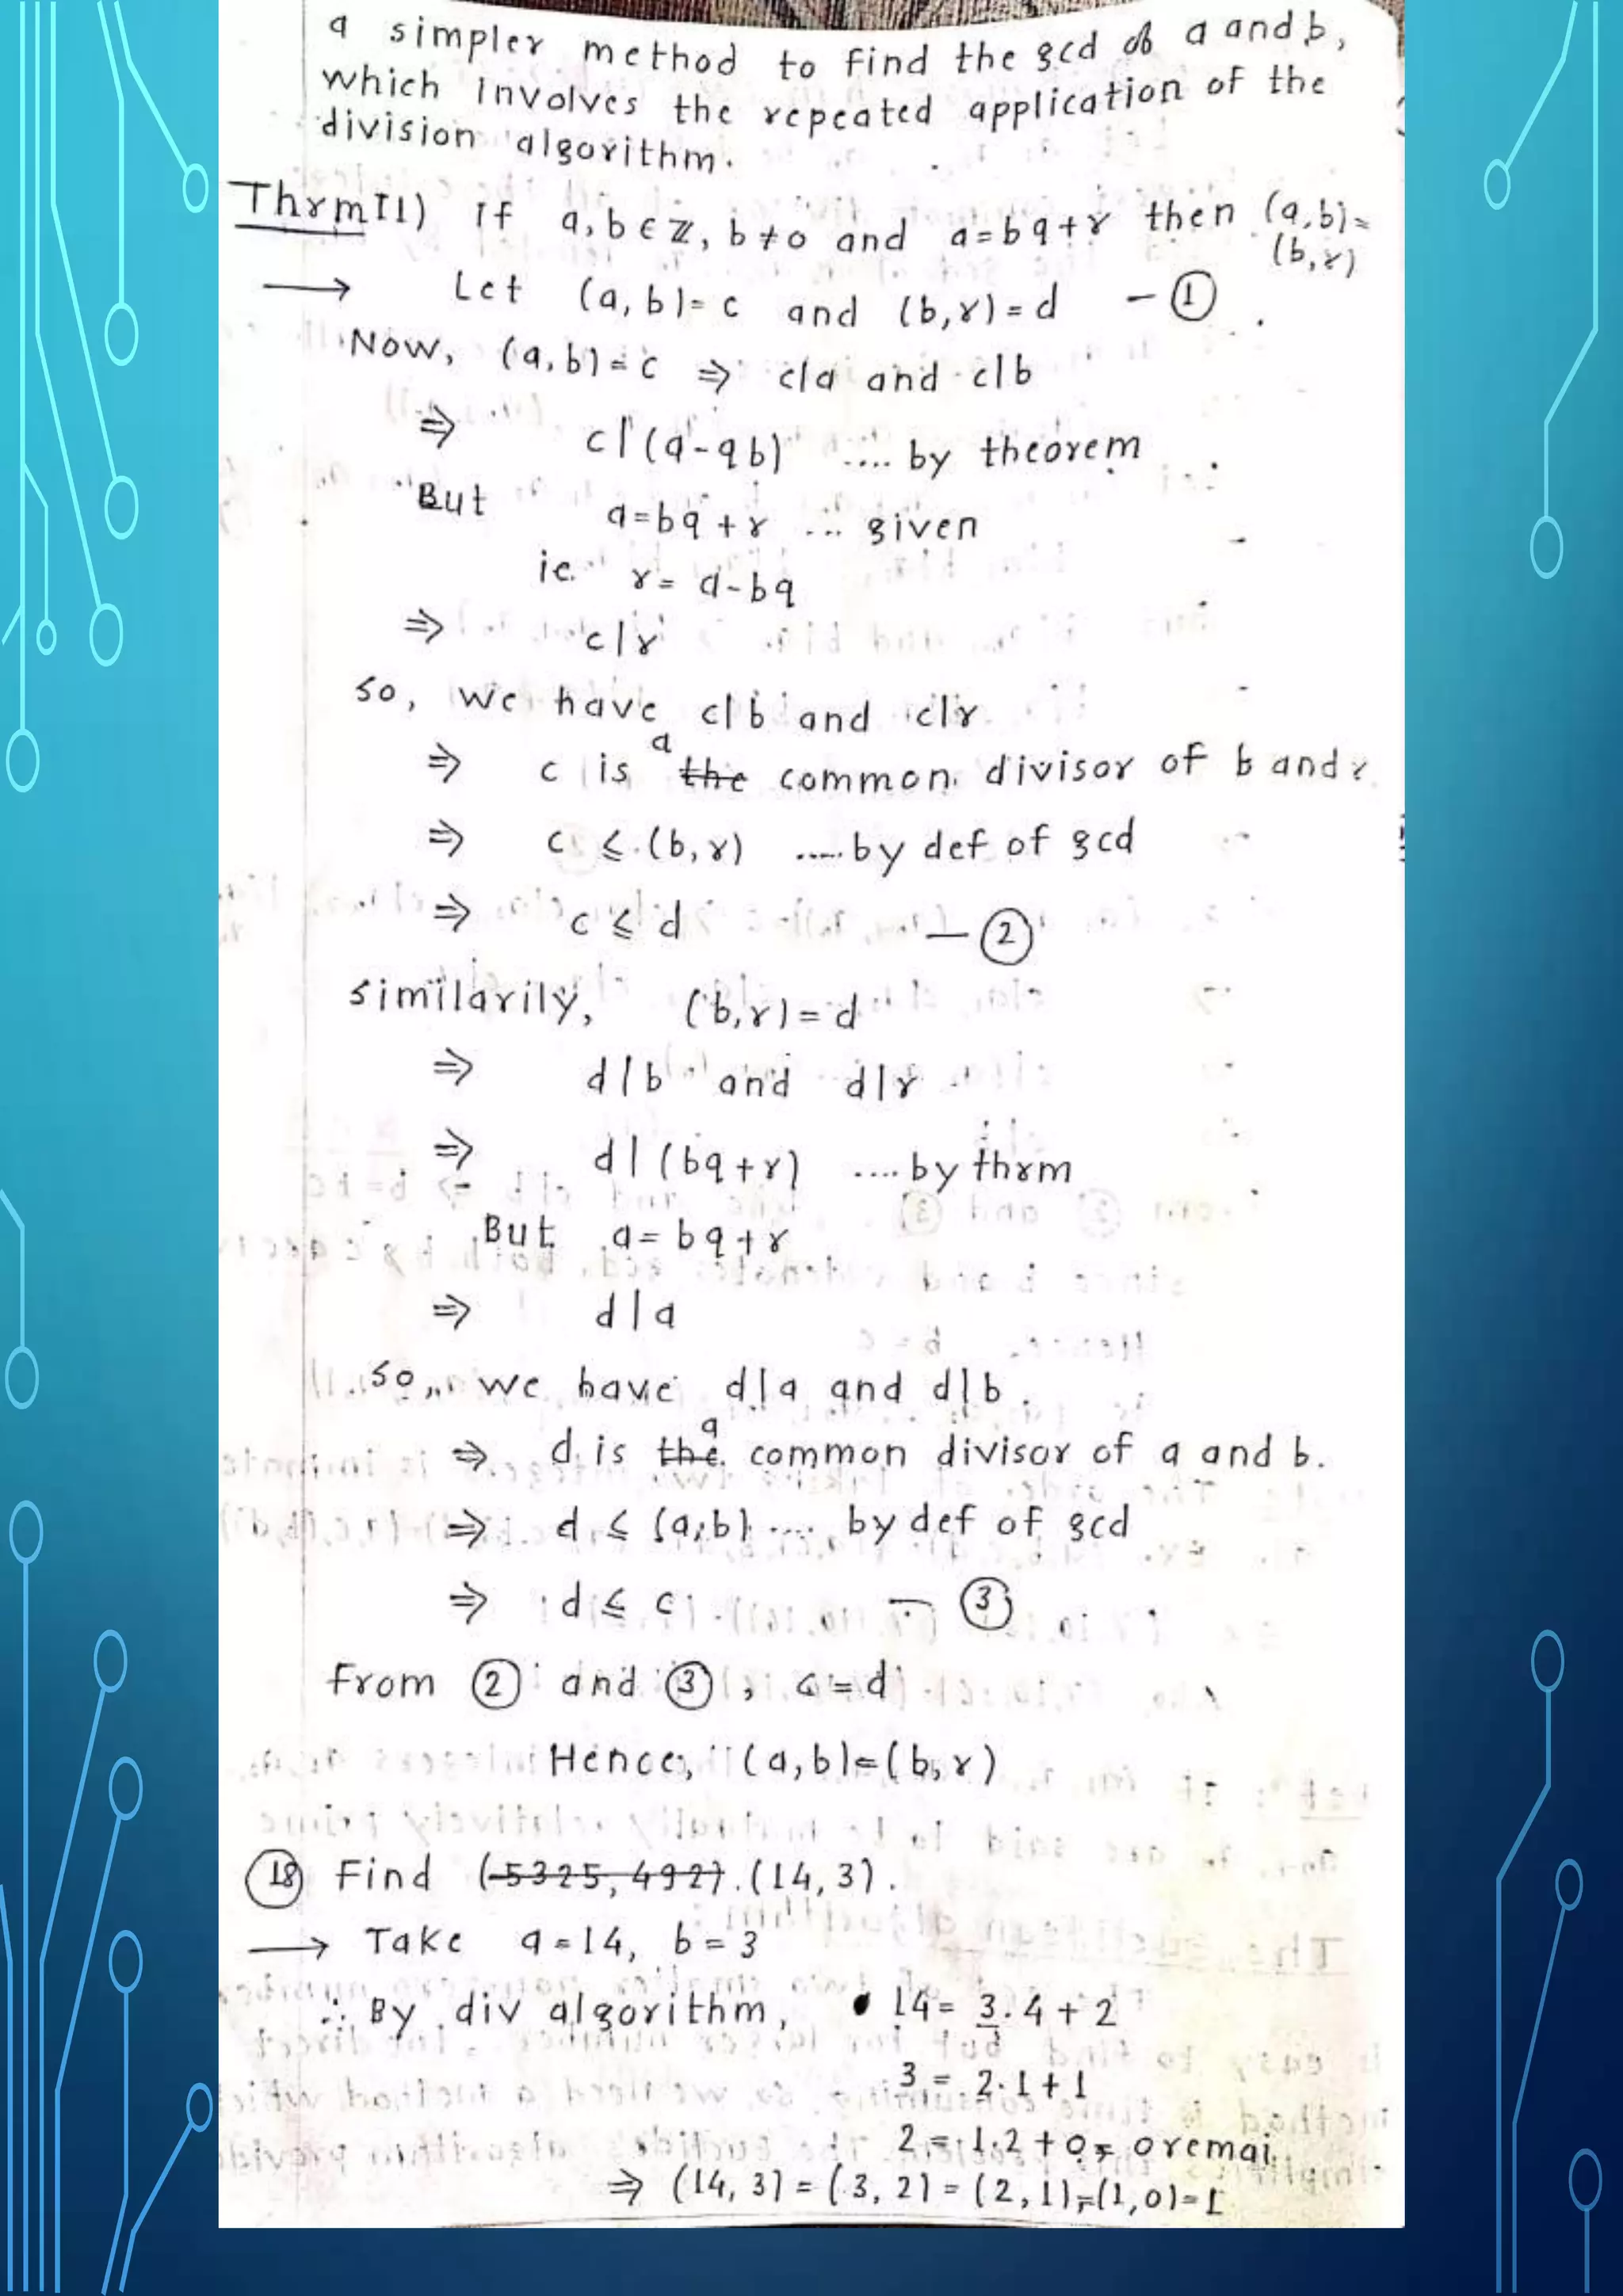 a simpler method to find the gcd of a and b,
which involves the repeated application of the
division algorithm.
Thrm 11) If a, b ∈ ℤ, b ≠ 0 and a = bq + r then (a, b) =
(b, r)
⟶ Let (a, b) = c and (b, r) = d — ①
Now, (a, b) = c ⇒ c|a and c|b
⇒ c|(a-qb) .... by theorem
But a = bq + r ... given
ie. r = a - bq
⇒ c|r
so, we have c|b and c|r
⇒ c is a ~~the~~ common divisor of b and r
⇒ c ≤ (b, r) ..... by def of gcd
⇒ c ≤ d — ②
similarily, (b, r) = d
⇒ d|b and d|r
⇒ d|(bq + r) .... by thrm
But a = bq + r
⇒ d|a
so, we have d|a and d|b.
⇒ d is a ~~the~~ common divisor of a and b.
⇒ d ≤ (a, b) .... by def of gcd
⇒ d ≤ c — ③
From ② and ③, c = d
Hence, (a, b) = (b, r)
⑱ Find ~~(5325, 492)~~. (14, 3).
⟶ Take a = 14, b = 3
∴ By div algorithm, 14 = 3.4 + 2
3 = 2.1 + 1
2 = 1.2 + 0 0 remai.
⇒ (14, 3) = (3, 2) = (2, 1) = (1, 0) = 1